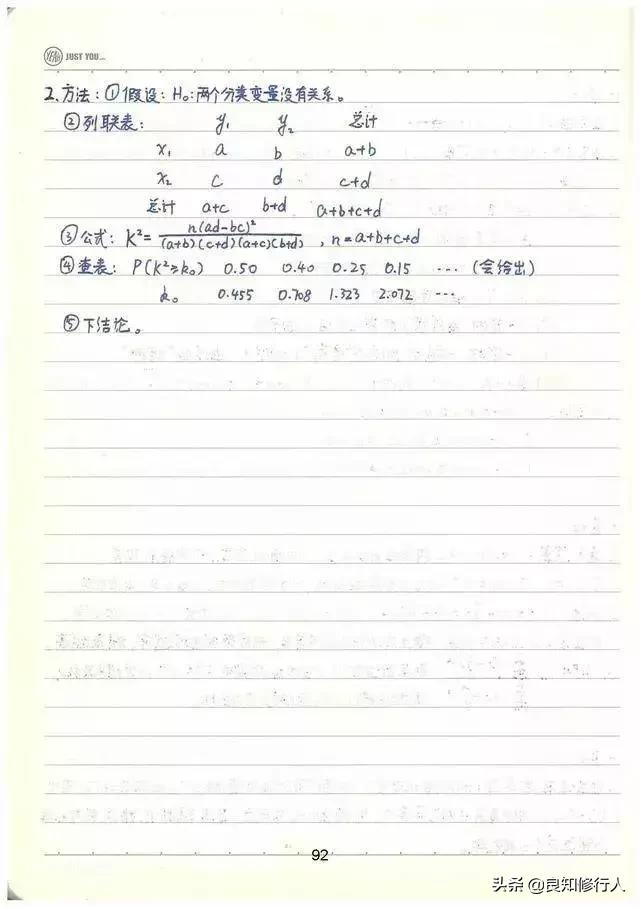 YEAH JUST YOU...
2.方法：①假设：H₀：两个分类变量没有关系。
②列联表： y₁ y₂ 总计
x₁ a b a+b
x₂ c d c+d
总计 a+c b+d a+b+c+d
③公式：K²=n(ad-bc)²/(a+b)(c+d)(a+c)(b+d)，n=a+b+c+d
④查表：P(K²≥k₀) 0.50 0.40 0.25 0.15 ···（会给出）
k₀ 0.455 0.708 1.323 2.072 ···
⑤下结论。
92
头条@良知修行人